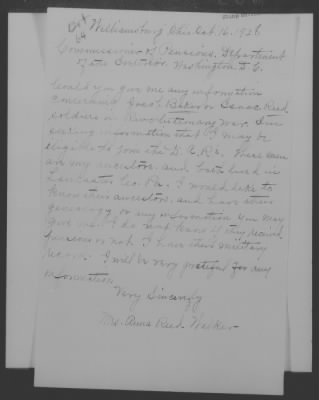 Williamsburg, Ohio Oct. 16. 1928
Commissioner of Pensions, Department
of the Interior. Washington D. C.
Could you give me any information
concerning Jacob Baker or Isaac Reed
soldiers in Revolutionary war. I'm
seeking information that I may be
eligible to join the D. A. Rs. These men
are my ancestors, and both lived in
Lancaster Co. Pa. I would like to
know their ancestors, and have their
genealogy, or any information you may
give me. I do not know if they received
pensions or not. I have their military
record. I will be very grateful for any
information.
Very Sincerely
Mrs. Anna Reed Walker